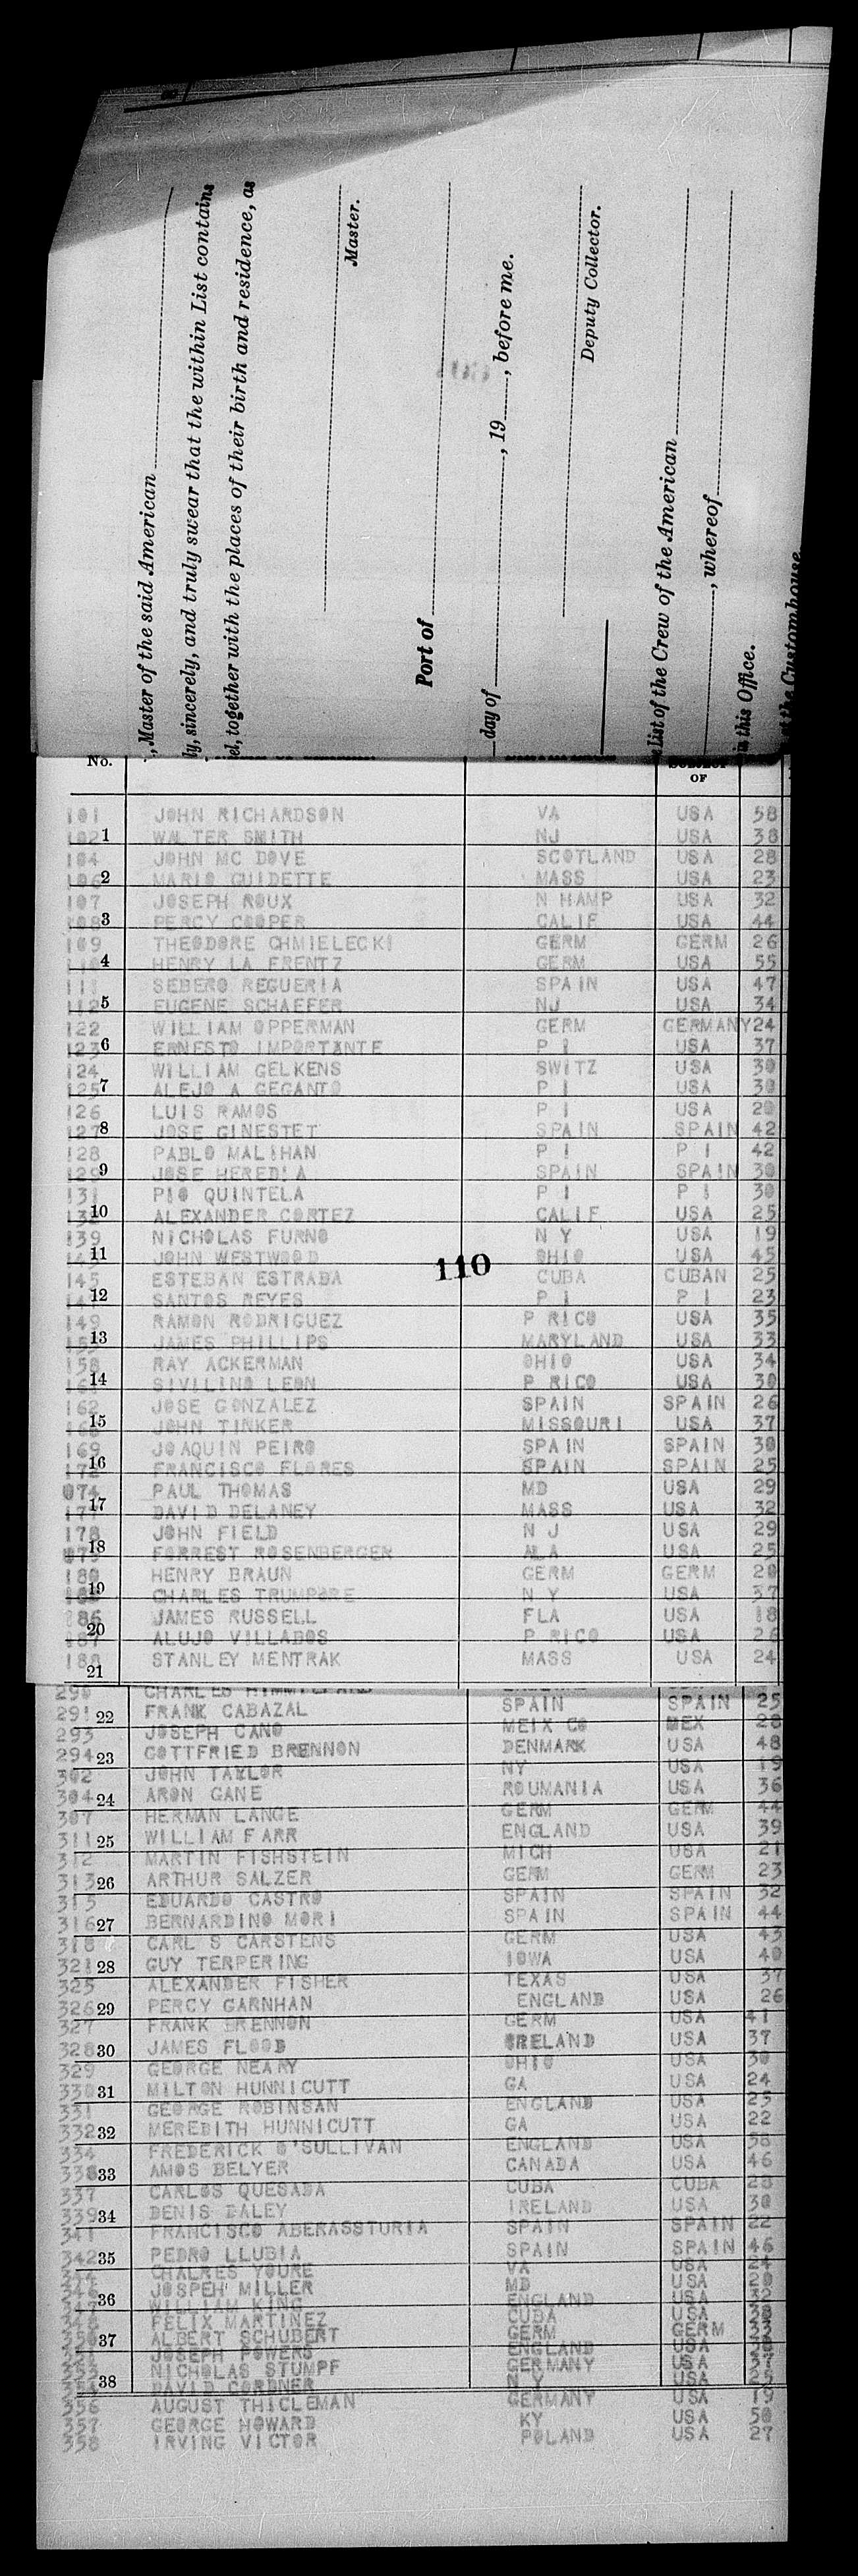 , Master of the said American
ly, sincerely, and truly swear that the within List contains
el, together with the places of their birth and residence, as
Master.
Port of
day of , 19 , before me.
Deputy Collector.
list of the Crew of the American
, whereof
in this Office.
the Customhouse
No. OF
101 JOHN RICHARDSON VA USA 58
102 1 WALTER SMITH NJ USA 38
104 JOHN MC DOVE SCOTLAND USA 28
106 2 MARIO GUIDETTE MASS USA 23
107 JOSEPH ROUX N HAMP USA 32
108 3 PERCY COOPER CALIF USA 44
109 THEODORE CHMIELECKI GERM GERM 26
110 4 HENRY LA FRENTZ GERM USA 55
111 SEBERO REGUERIA SPAIN USA 47
112 5 EUGENE SCHAEFER NJ USA 34
122 WILLIAM OPPERMAN GERM GERMANY 24
123 6 ERNESTO IMPORTANTE P I USA 37
124 WILLIAM GELKENS SWITZ USA 30
125 7 ALEJO A GEGANTO P I USA 30
126 LUIS RAMOS P I USA 20
127 8 JOSE GINESTET SPAIN SPAIN 42
128 PABLO MALIHAN P I P I 42
129 9 JOSE HEREDIA SPAIN SPAIN 30
131 PIO QUINTELA P I P I 30
132 10 ALEXANDER CORTEZ CALIF USA 25
139 NICHOLAS FURNO N Y USA 19
11 JOHN WESTWOOD OHIO USA 45
110
145 ESTEBAN ESTRADA CUBA CUBAN 25
12 SANTOS REYES P I P I 23
149 RAMON RODRIGUEZ P RICO USA 35
13 JAMES PHILLIPS MARYLAND USA 33
158 RAY ACKERMAN OHIO USA 34
14 SIVILINO LEON P RICO USA 30
162 JOSE GONZALEZ SPAIN SPAIN 26
15 JOHN TINKER MISSOURI USA 37
169 JOAQUIN PEIRO SPAIN SPAIN 30
172 16 FRANCISCO FLORES SPAIN SPAIN 25
074 PAUL THOMAS MD USA 29
177 17 DAVID DELANEY MASS USA 32
178 JOHN FIELD N J USA 29
079 18 FORREST ROSENBERGER ALA USA 25
180 HENRY BRAUN GERM GERM 20
19 CHARLES TRUMPORE N Y USA 37
186 JAMES RUSSELL FLA USA 18
187 20 ALUJO VILLABOS P RICO USA 26
188 21 STANLEY MENTRAK MASS USA 24
290 CHARLES
291 22 FRANK CABAZAL SPAIN SPAIN 25
293 JOSEPH CANO MEIX CO MEX 28
294 23 GOTTFRIED BRENNON DENMARK USA 48
302 JOHN TAYLOR NY USA 19
304 24 ARON GANE ROUMANIA USA 36
307 HERMAN LANGE GERM GERM 44
311 25 WILLIAM FARR ENGLAND USA 39
312 MARTIN FISHSTEIN MICH USA 21
313 26 ARTHUR SALZER GERM GERM 23
315 EDUARDO CASTRO SPAIN SPAIN 32
316 27 BERNARDINO MORI SPAIN SPAIN 44
318 CARL S CARSTENS GERM USA 43
321 28 GUY TERPERING IOWA USA 40
325 ALEXANDER FISHER TEXAS USA 37
326 29 PERCY GARNHAN ENGLAND USA 26
327 FRANK BRENNON GERM USA 41
328 30 JAMES FLOOD IRELAND USA 37
329 GEORGE NEARY OHIO USA 30
330 31 MILTON HUNNICUTT GA USA 24
331 GEORGE ROBINSAN ENGLAND USA 25
332 32 MEREDITH HUNNICUTT GA USA 22
334 FREDERICK O'SULLIVAN ENGLAND USA 58
336 33 AMOS BELYER CANADA USA 46
337 CARLOS QUESADA CUBA CUBA 28
339 34 DENIS DALEY IRELAND USA 30
341 FRANCISCO ABERASSTURIA SPAIN SPAIN 22
342 35 PEDRO LLUBIA SPAIN SPAIN 46
CHALRES YOURE VA USA 24
36 JOSPEH MILLER MD USA 20
347 WILLIAM KING ENGLAND USA 32
FELIX MARTINEZ CUBA USA 30
350 37 ALBERT SCHUBERT GERM GERM 33
JOSEPH POWERS ENGLAND USA 38
353 NICHOLAS STUMPF GERMANY USA 37
354 38 DAVID CORDNER N Y USA 25
356 AUGUST THICLEMAN GERMANY USA 19
357 GEORGE HOWARD KY USA 50
358 IRVING VICTOR POLAND USA 27